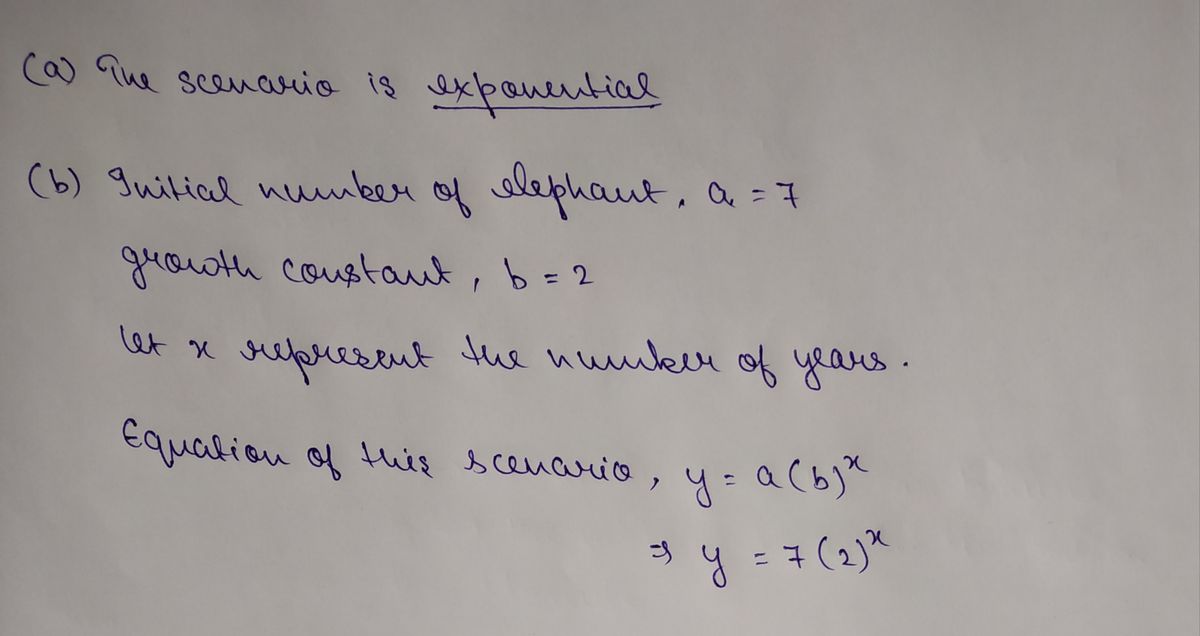 (a) The scenario is exponential
(b) Initial number of elephant, a = 7
growth constant, b = 2
let x represent the number of years.
Equation of this scenario, y = a(b)^x
⇒ y = 7(2)^x